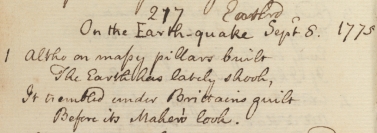 217 Eastbd
On the Earth-quake Sept 8. 1775
1 Altho on massy pillars built
The Earth has lately shook,
It trembled under Brittains guilt
Before its Maker's look.